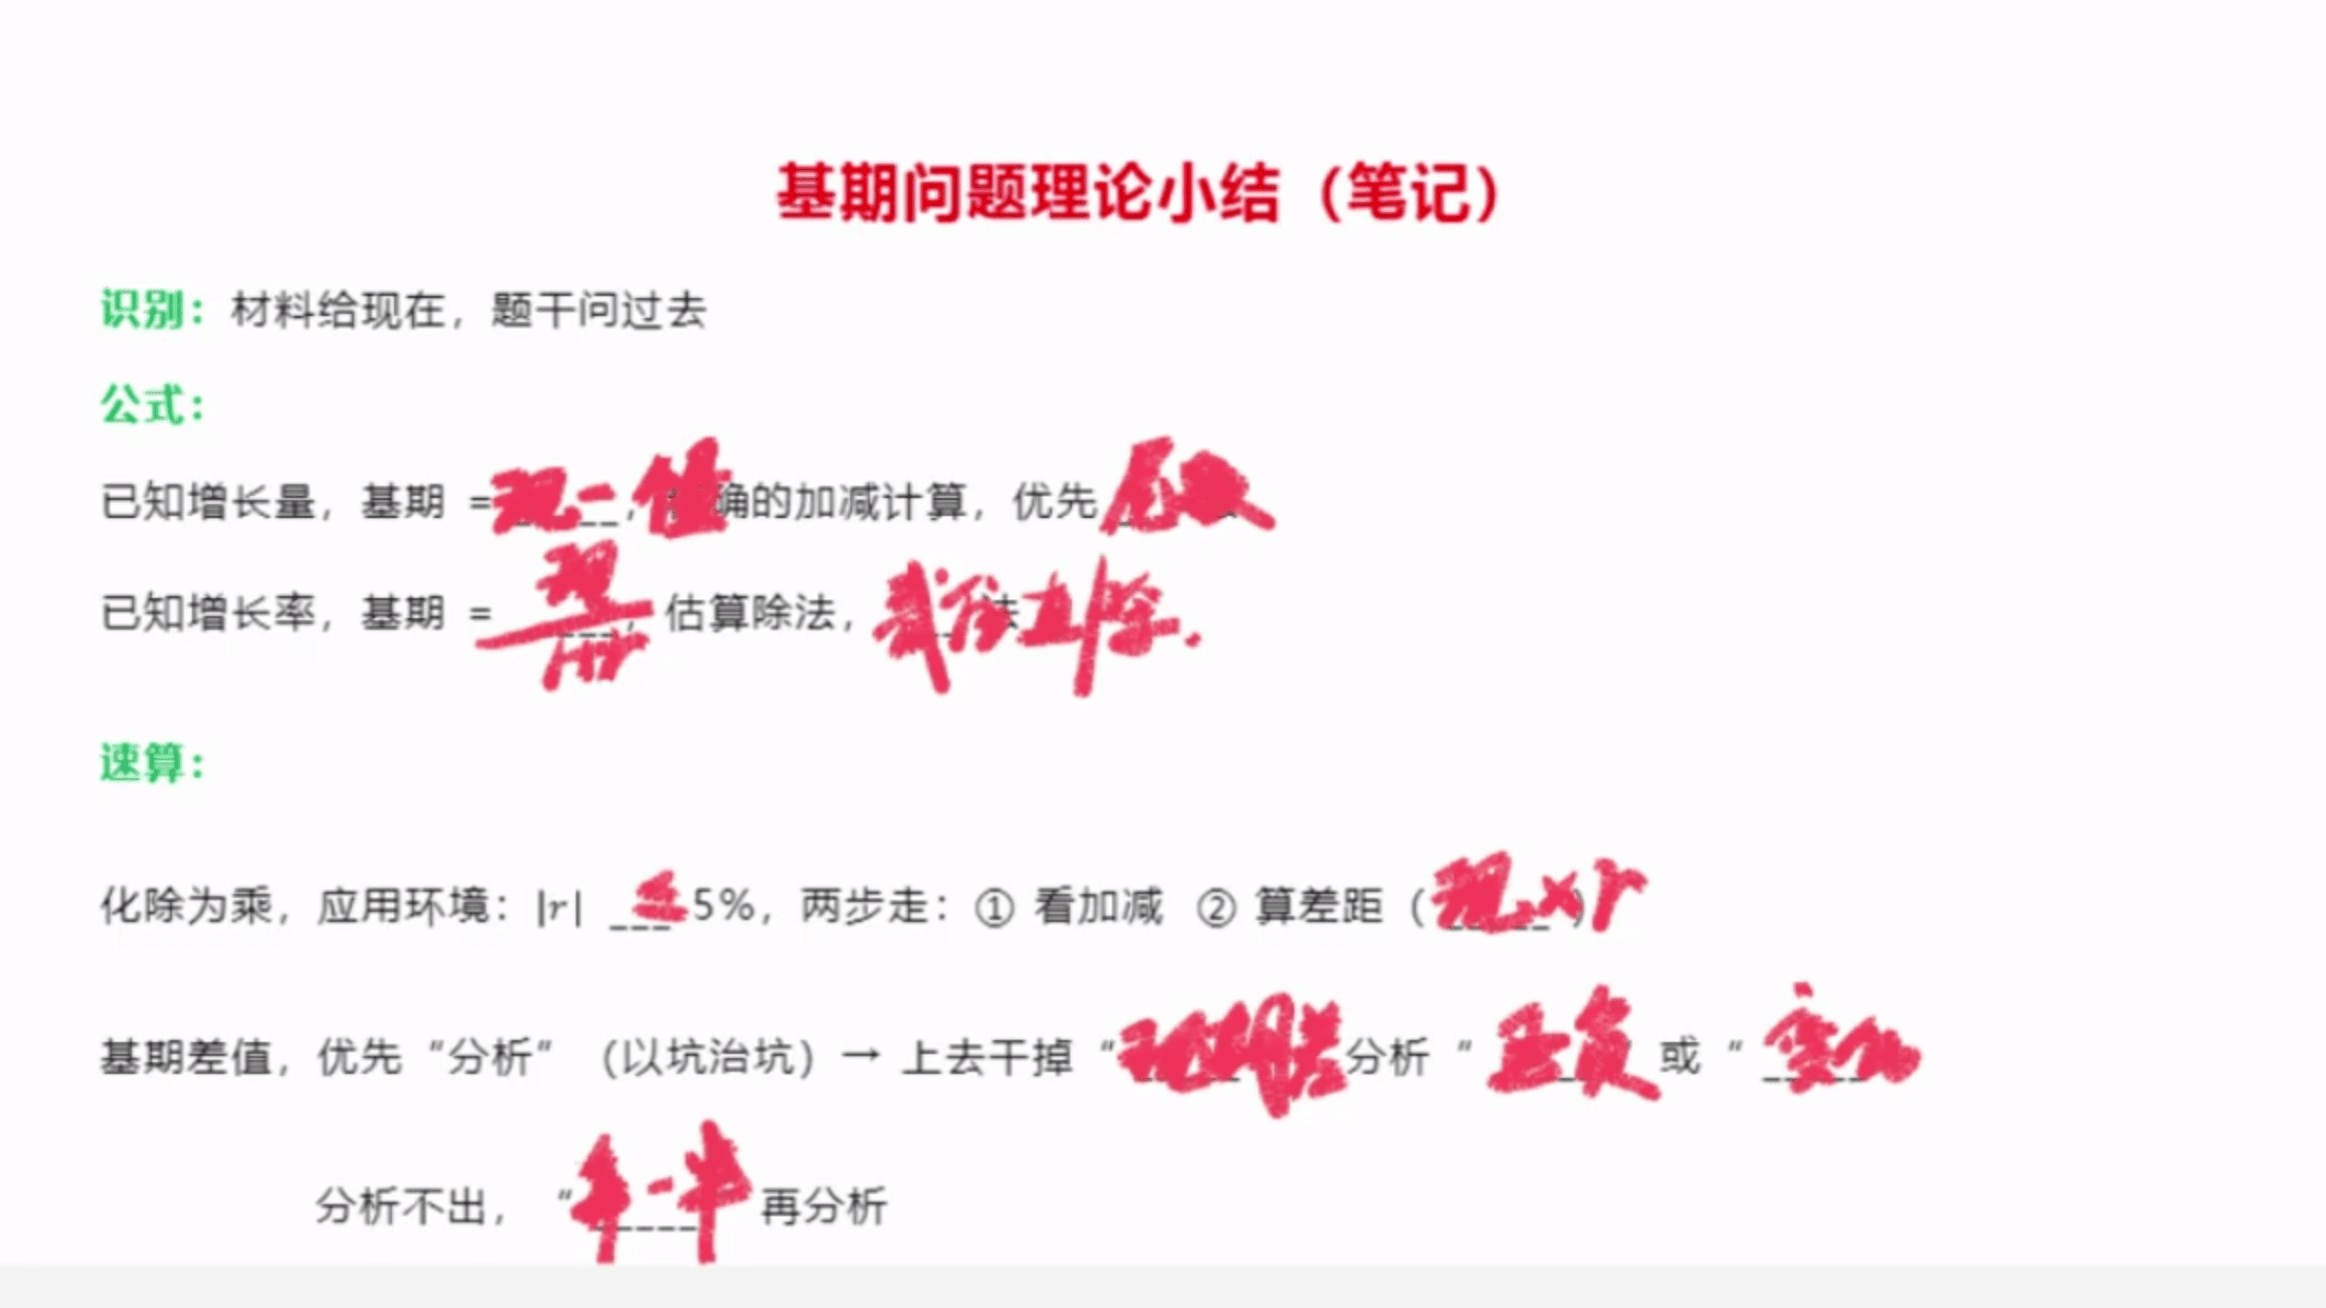 基期问题理论小结（笔记）
识别：材料给现在，题干问过去
公式：
已知增长量，基期 = 现-值 确的加减计算，优先 尾数
已知增长率，基期 = 现/1+r，估算除法， 截位直除
速算：
化除为乘，应用环境：|r| ≤ 5%，两步走：① 看加减 ② 算差距（现×r）
基期差值，优先“分析”（以坑治坑）→ 上去干掉“现期差 分析“正负”或“变化
分析不出，“算一半 再分析